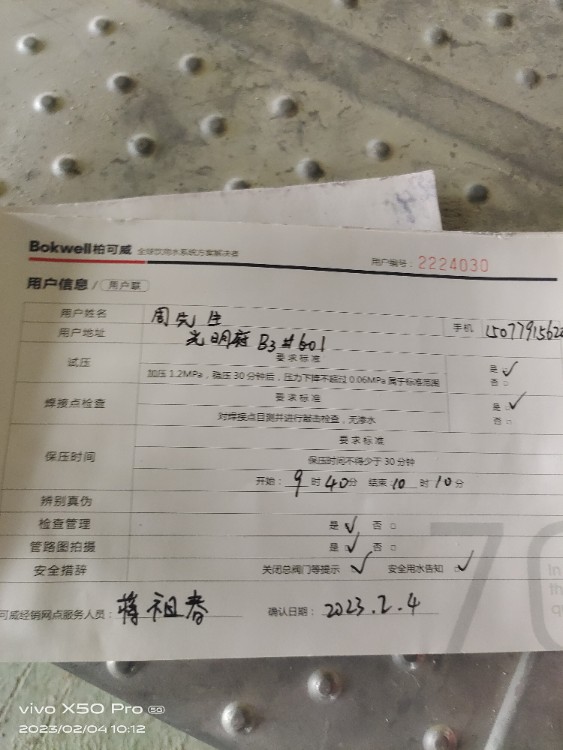 Bokwell柏可威 全球饮用水系统方案解决者
用户编号：2224030
用户信息 / 用户联
用户姓名 周先生 手机 1507791562
用户地址 光明府 B3#601
试压 要求标准 是 ✓
加压 1.2MPa，稳压 30 分钟后，压力下降不超过 0.06MPa 属于标准范围 否 □
焊接点检查 要求标准 是 ✓
对焊接点目测并进行敲击检查，无渗水 否 □
保压时间 要求标准
保压时间不得少于 30 分钟
开始：9 时 40 分 结束 10 时 10 分
辨别真伪
检查管理 是 ✓ 否 □
管路图拍摄 是 ✓ 否 □
安全措辞 关闭总阀门等提示 ✓ 安全用水告知 ✓
可威经销网点服务人员：蒋祖春 确认日期：2023.2.4
vivo X50 Pro 5G
2023/02/04 10:12